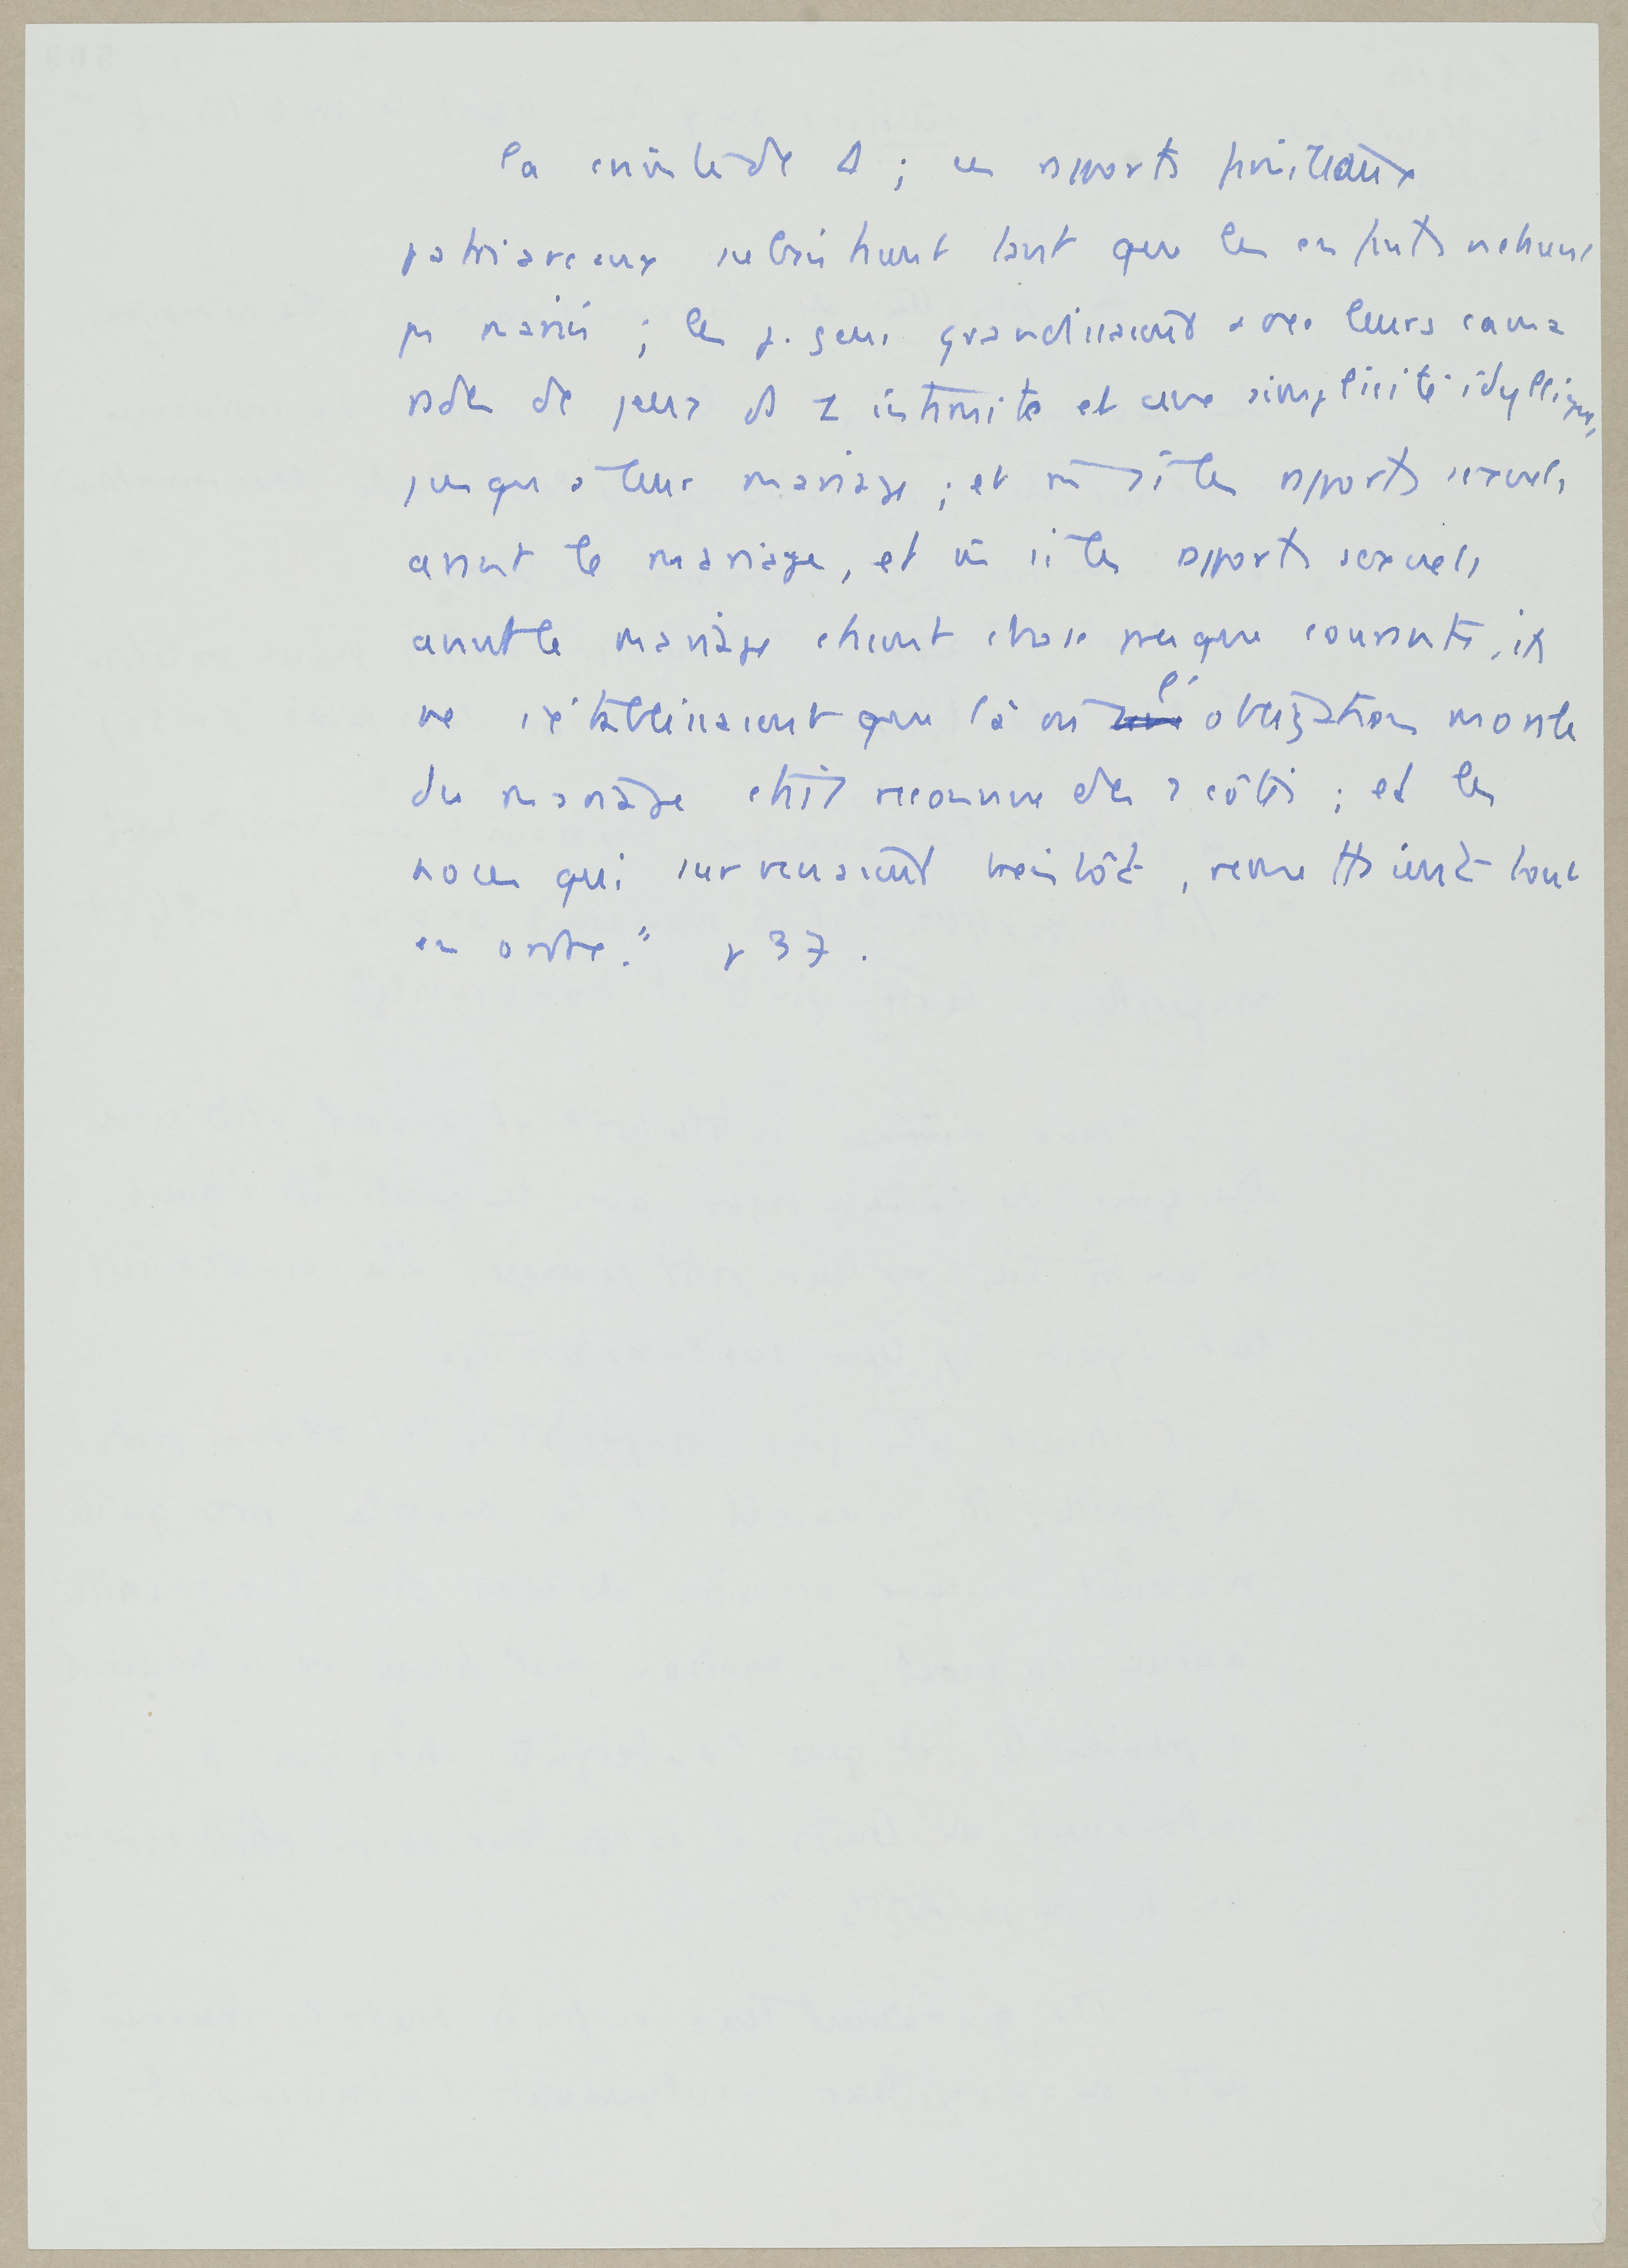 la cruauté de A ; ces rapports familiaux
patriarcaux subsistaient tant que les enfants n'étaient
pas mariés ; les j. gens grandissaient avec leurs cama
rades de jeux ds 1 intimité et une simplicité idyllique,
jusqu'à leur mariage ; et même si les rapports sexuels
avant le mariage, et même si les rapports sexuels
avant le mariage étaient chose presque courante, ils
ne s'établissaient que là où l'obligation morale
du mariage était reconnue des 2 côtés ; et les
noces qui survenaient bientôt, remettaient tout
en ordre." p 37.